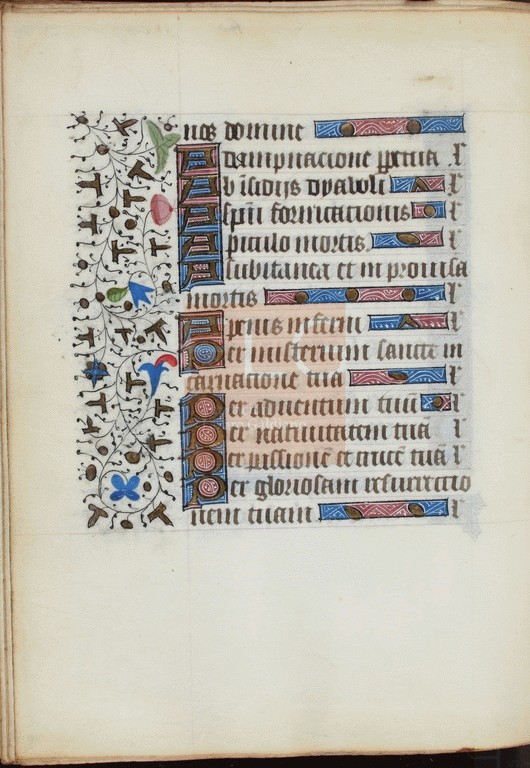 nos domine
A dampnacione ppetua ℟
Ab isidijs dyaboli ℟
A spū fornicationis ℟
A piculo mortis. ℟
A subitanea et in prouisa
mortis ℟
A penis inferni ℟
Per misterium sancte in
carnacione tua ℟
Per aduentum tuū ℟
Per natiuitatem tuā ℟
Per passionē et crucē tuā ℟
Per gloriosam resurrectio
nem tuam ℟